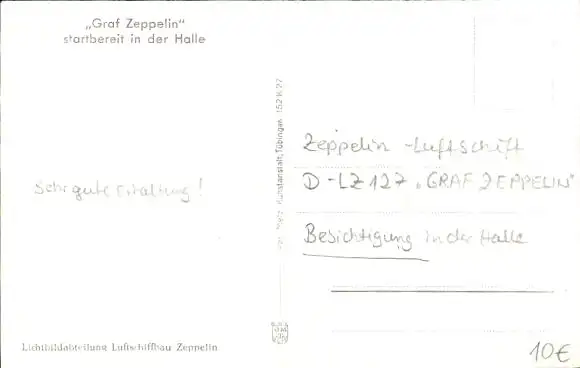 „Graf Zeppelin“
startbereit in der Halle
Sehr gute Erhaltung!
Lichtbildabteilung Luftschiffbau Zeppelin
Metz, Kunstanstalt, Tübingen 152 K 27
Zeppelin-Luftschift
D-LZ127 „GRAF ZEPPELIN“
Besichtigung in der Halle
10€